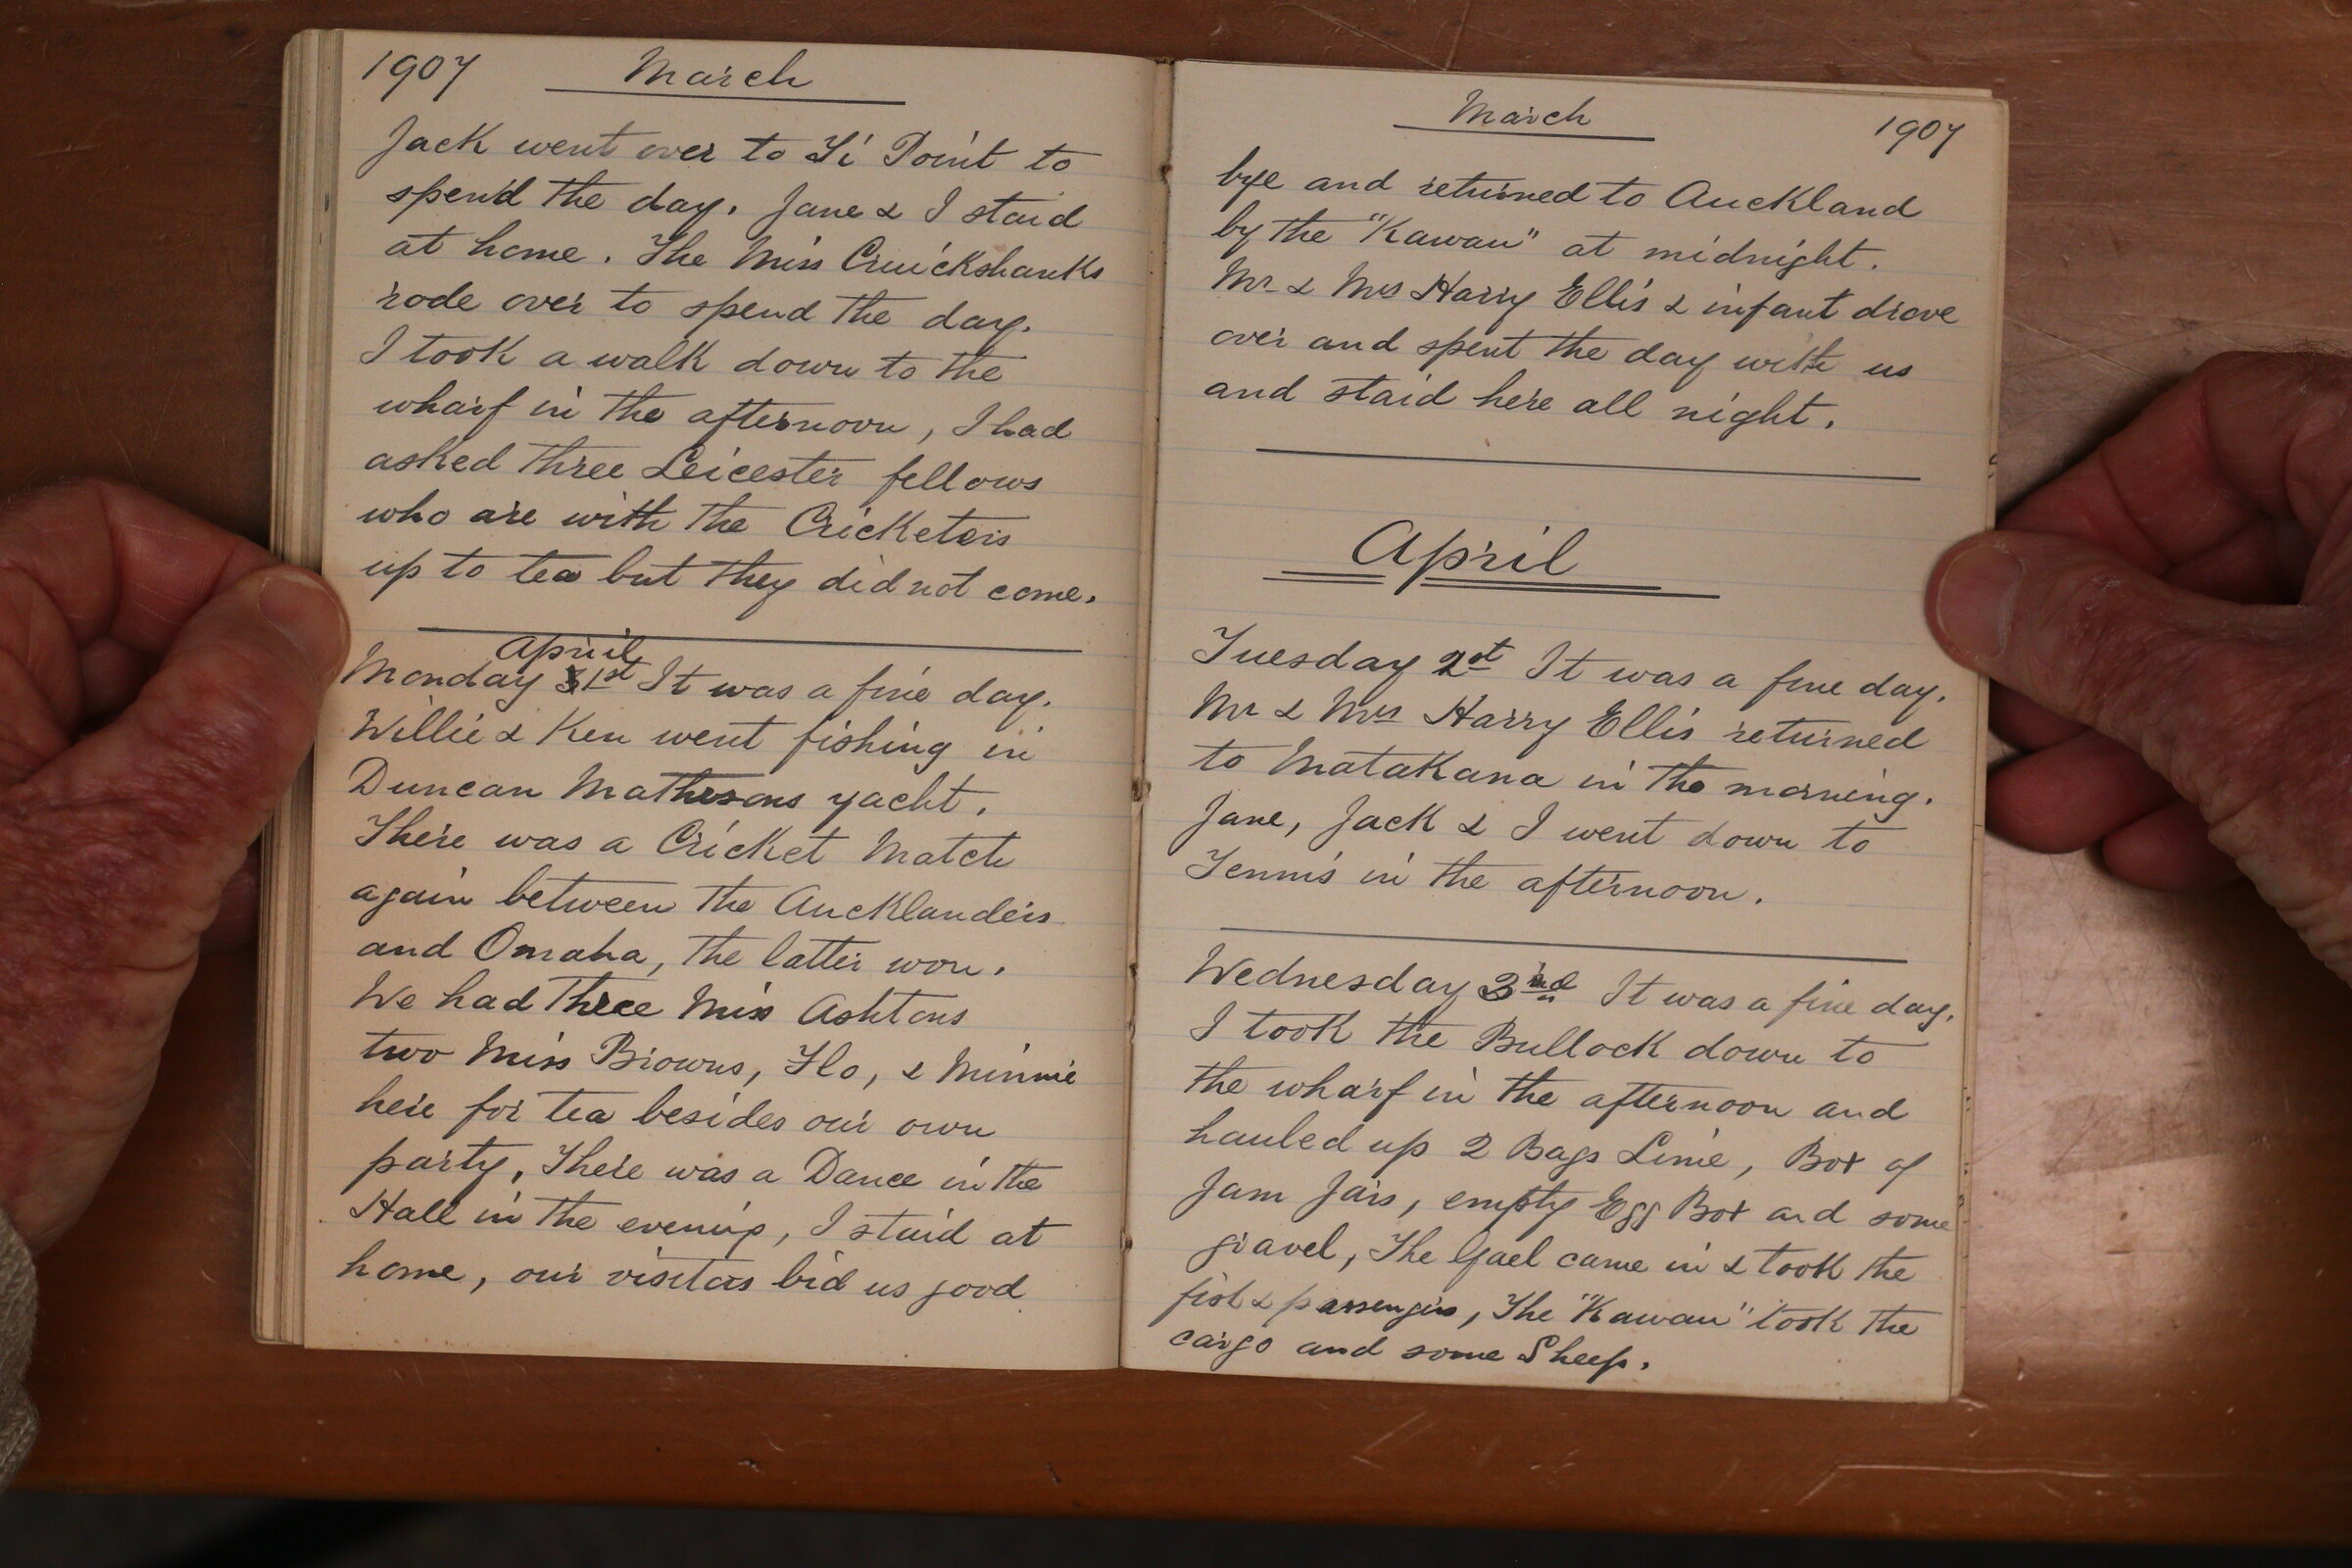 1907 March
Jack went over to Ti Point to
spend the day. Jane & I staid
at home. The Miss Cruickshanks
rode over to spend the day.
I took a walk down to the
wharf in the afternoon, I had
asked three Leicester fellows
who are with the Cricketers
up to tea but they did not come.
April
Monday 1st It was a fine day.
Willie & Ken went fishing in
Duncan Mathesons yacht.
There was a Cricket Match
again between the Aucklanders
and Omaha, the latter won.
We had Three Miss Ashtons
two Miss Browns, Flo, & Minnie
here for tea besides our own
party, There was a Dance in the
Hall in the evening, I staid at
home, our visitors bid us good
March 1907
bye and returned to Auckland
by the "Kawau" at midnight.
Mr & Mrs Harry Ellis & infant drove
over and spent the day with us
and staid here all night.
April
Tuesday 2st It was a fine day.
Mr & Mrs Harry Ellis returned
to Matakana in the morning.
Jane, Jack & I went down to
Tennis in the afternoon.
Wednesday 3rd It was a fine day.
I took the Bullock down to
the wharf in the afternoon and
hauled up 2 Bags Lime, Box of
Jam Jars, empty Egg Box and some
gravel, The Gael came in & took the
fish & passengers, The "Kawau" took the
cargo and some Sheep.